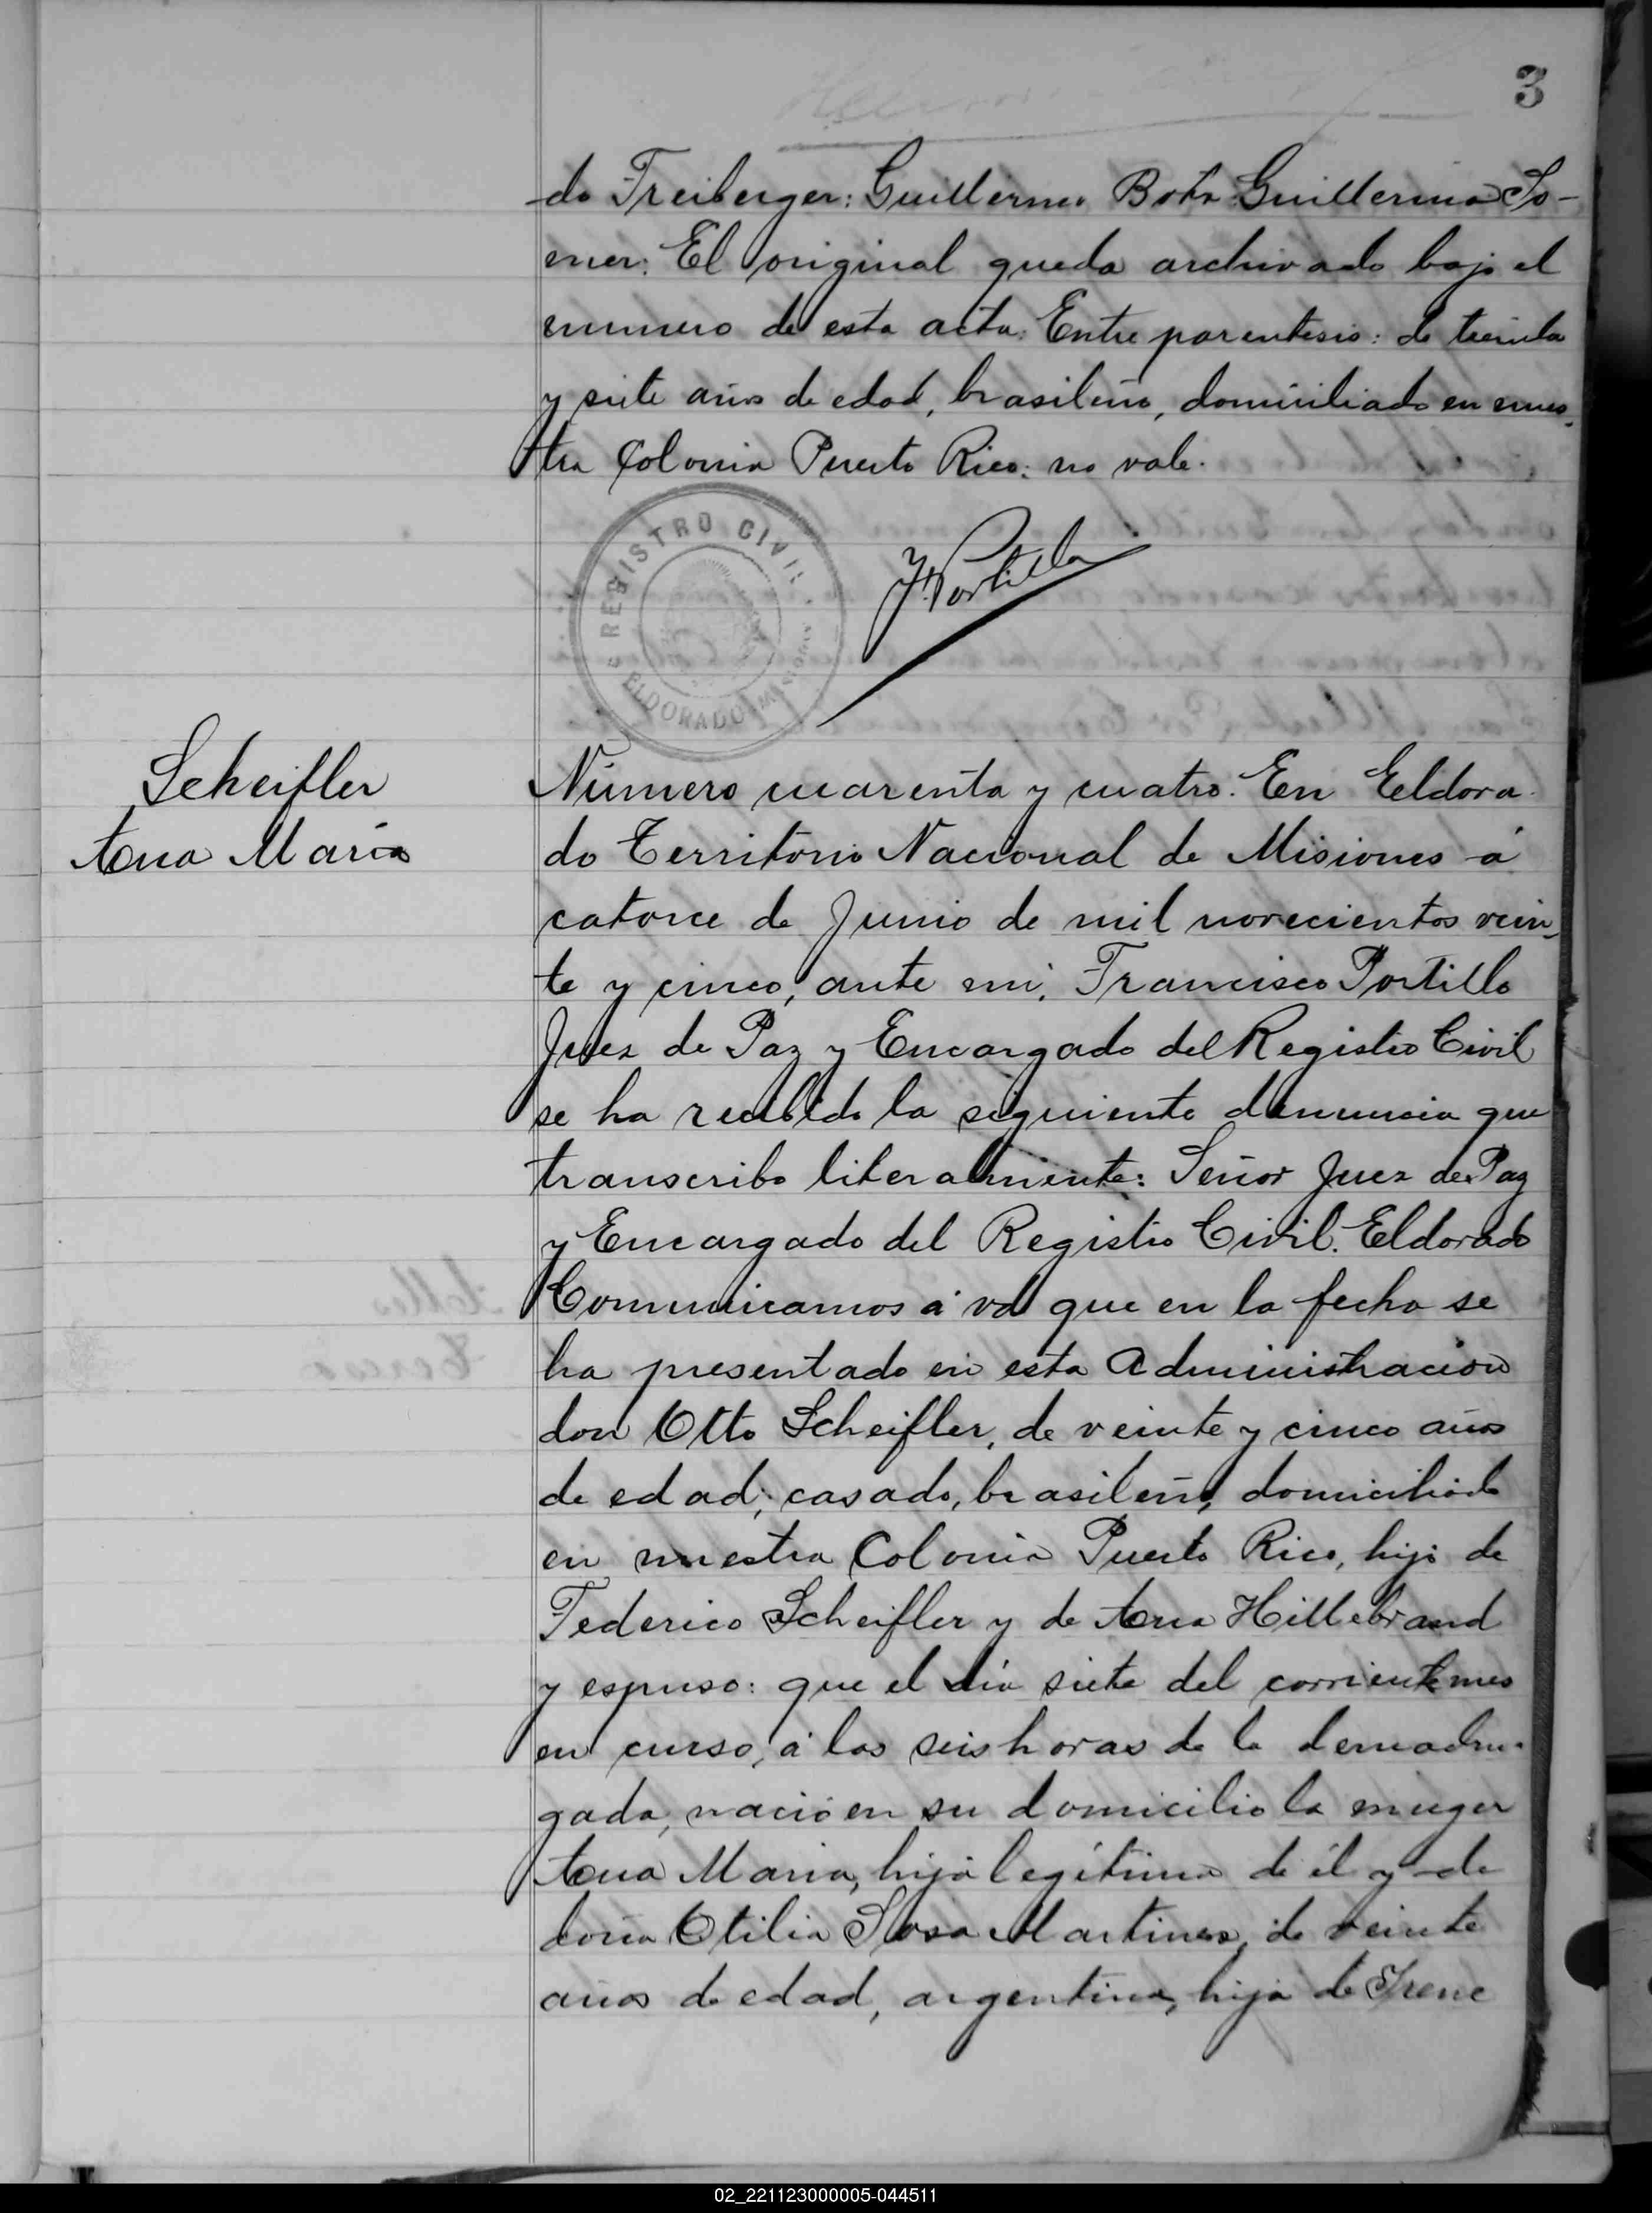 3
do Freiberger: Guillermo Bohr Guillermo So-
mer. El original queda archivado bajo el
numero de esta acta. Entre parentesis: de treinta
y siete años de edad, brasileño, domiciliado en nues-
tra Colonia Puerto Rico: no vale.
REGISTRO CIVIL
ELDORADO MISIONES
F. Portillo
Scheifler
Ana María
Número cuarenta y cuatro. En Eeldora-
do Territorio Nacional de Misiones á
catorce de Junio de mil novecientos vein-
te y cinco, ante mi, Francisco Portillo
Juez de Paz y Encargado del Registro Civil
se ha recibido la siguiente denuncia que
transcribo literalmente: Señor Juez de Paz
y Encargado del Registro Civil. Eldorado
Comunicamos á vd que en la fecha se
ha presentado en esta Administracion
don Otto Scheifler, de veinte y cinco años
de edad, casado, brasileño, domiciliado
en nuestra Colonia Puerto Rico, hijo de
Federico Scheifler y de Ana Hillebrand
y espuso: que el dia siete del corriente mes
en curso, á las seis horas de la demadru-
gada, nació en su domicilio la muger
Ana Maria, hija legitima de él y de
doña Otilia Sosa Martinez, de veinte
años de edad, argentina, hija de Irene
02_221123000005-044511